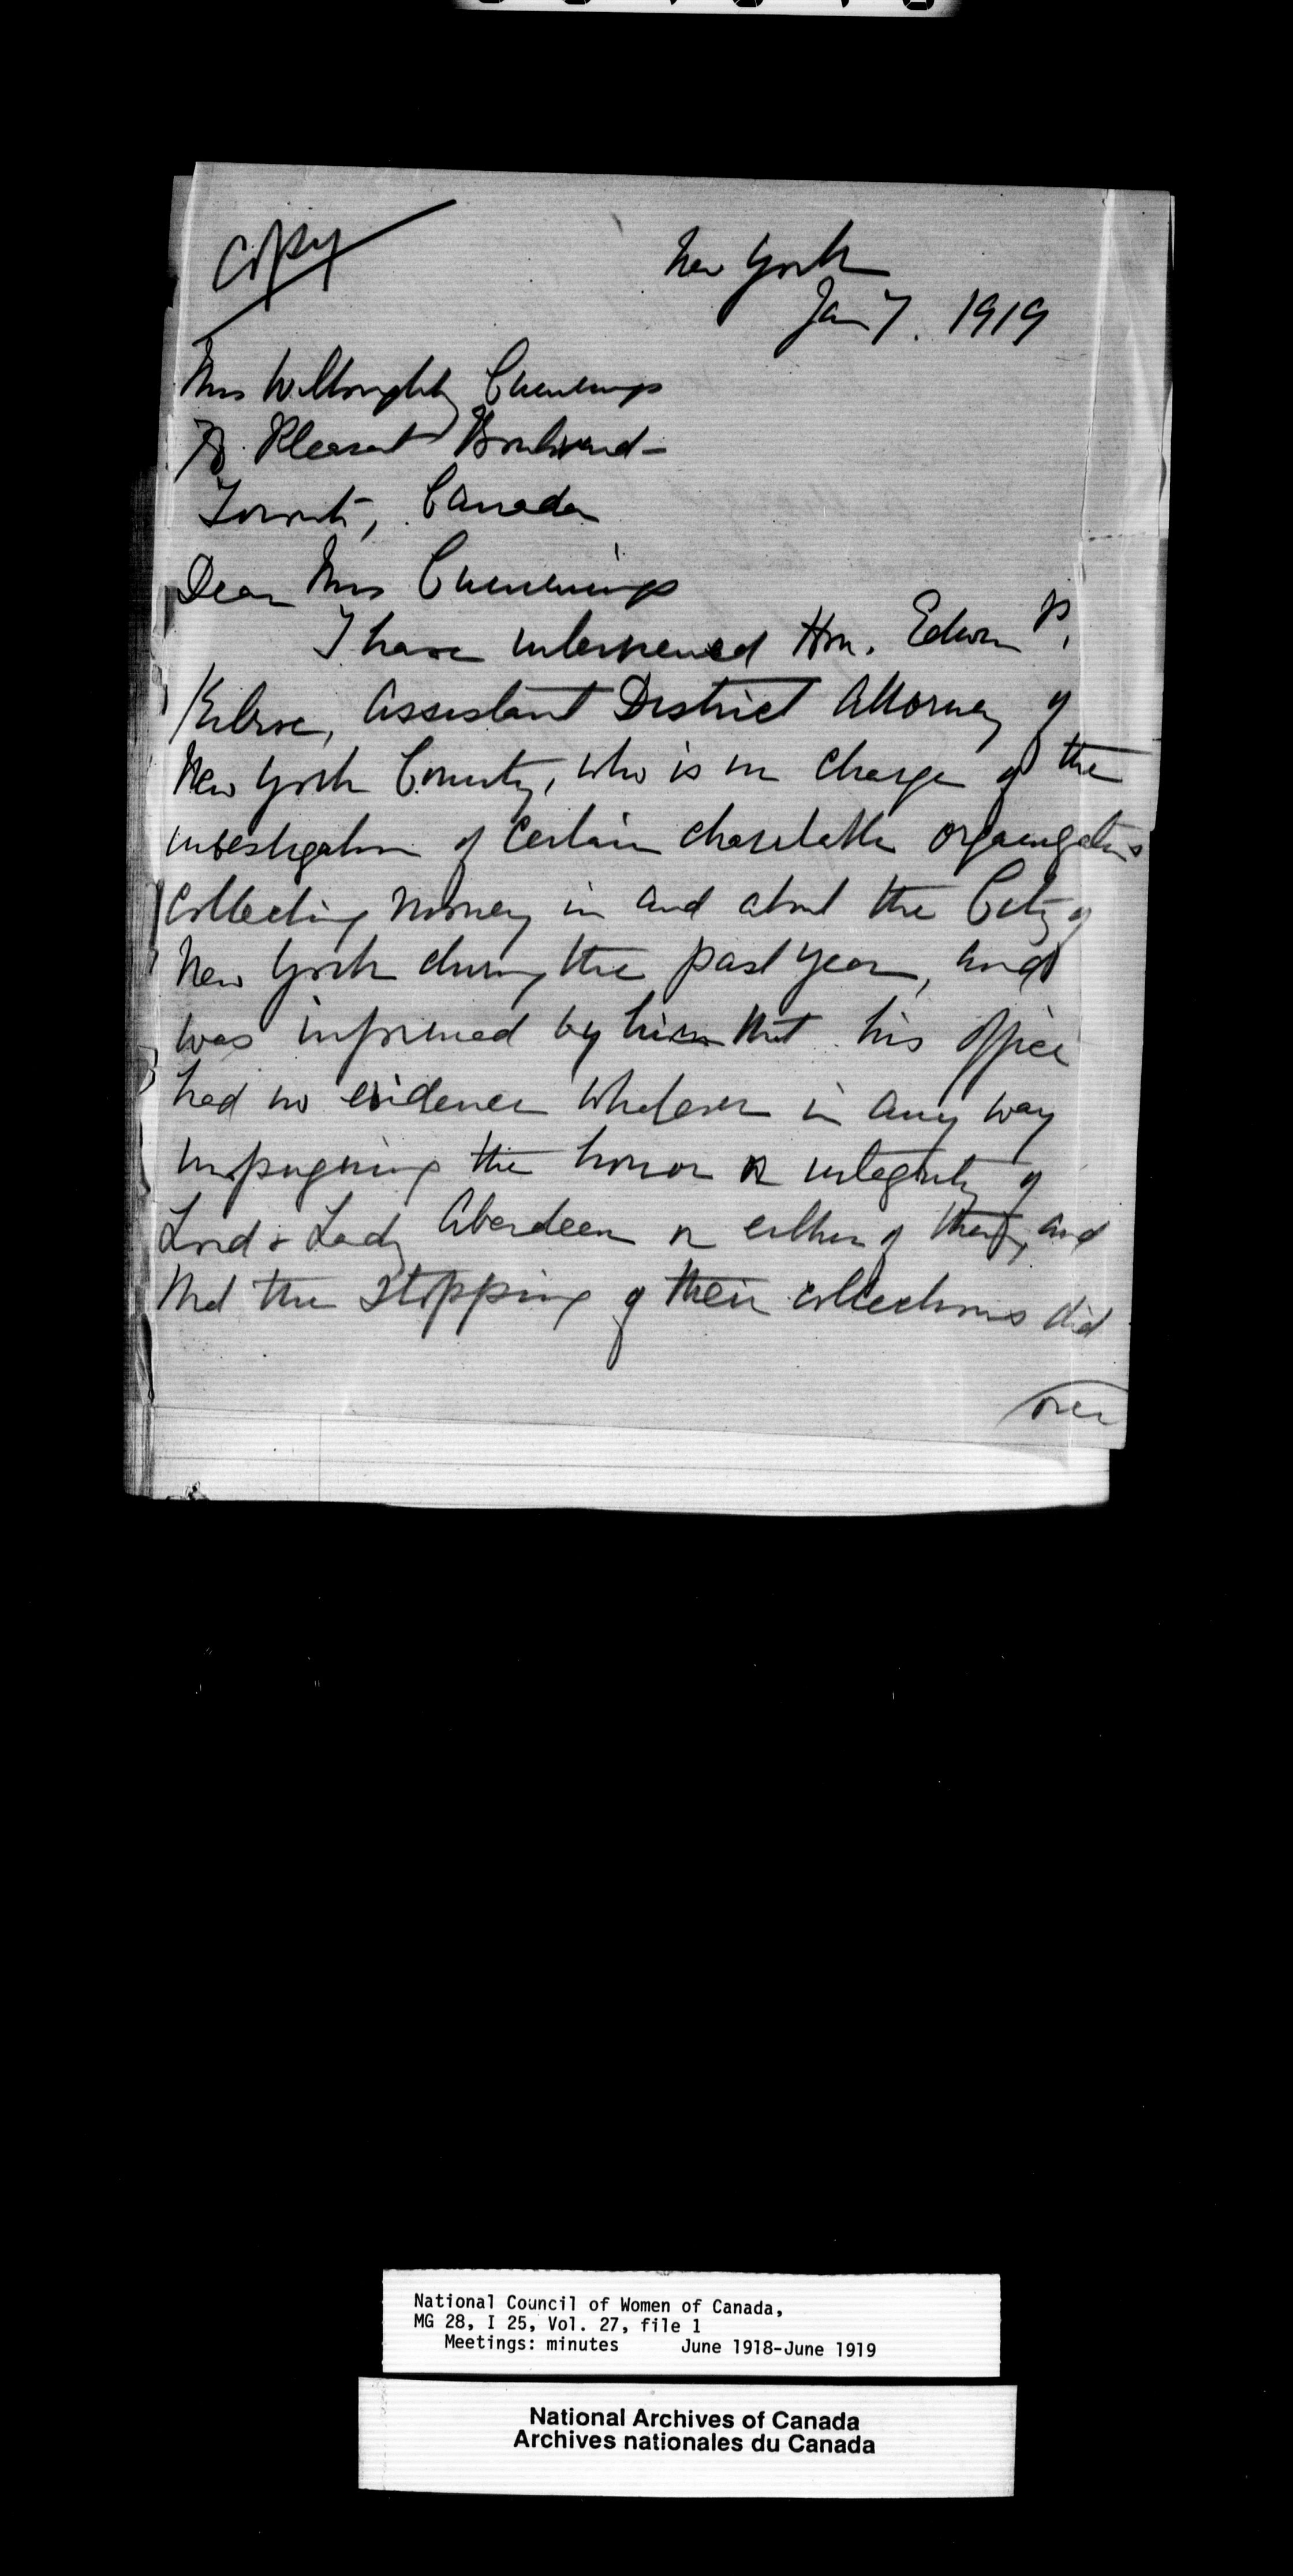 Copy
New York
Jan 7. 1919
Mrs Willoughby Cummings
Pleasant Boulevard -
Toronto, Canada
Dear Mrs Cummings
I have interviewed Hon. Edwin P.
Kilroe, Assistant District Attorney of
New York County, who is in charge of the
investigation of certain charitable organizations
collecting money in and about the City of
New York during the past year, and
was informed by him that his office
had no evidence whatever in any way
impugning the honor or integrity of
Lord & Lady Aberdeen or either of them, and
that the stopping of their collections did
over
National Council of Women of Canada,
MG 28, I 25, Vol. 27, file 1
Meetings: minutes June 1918-June 1919
National Archives of Canada
Archives nationales du Canada